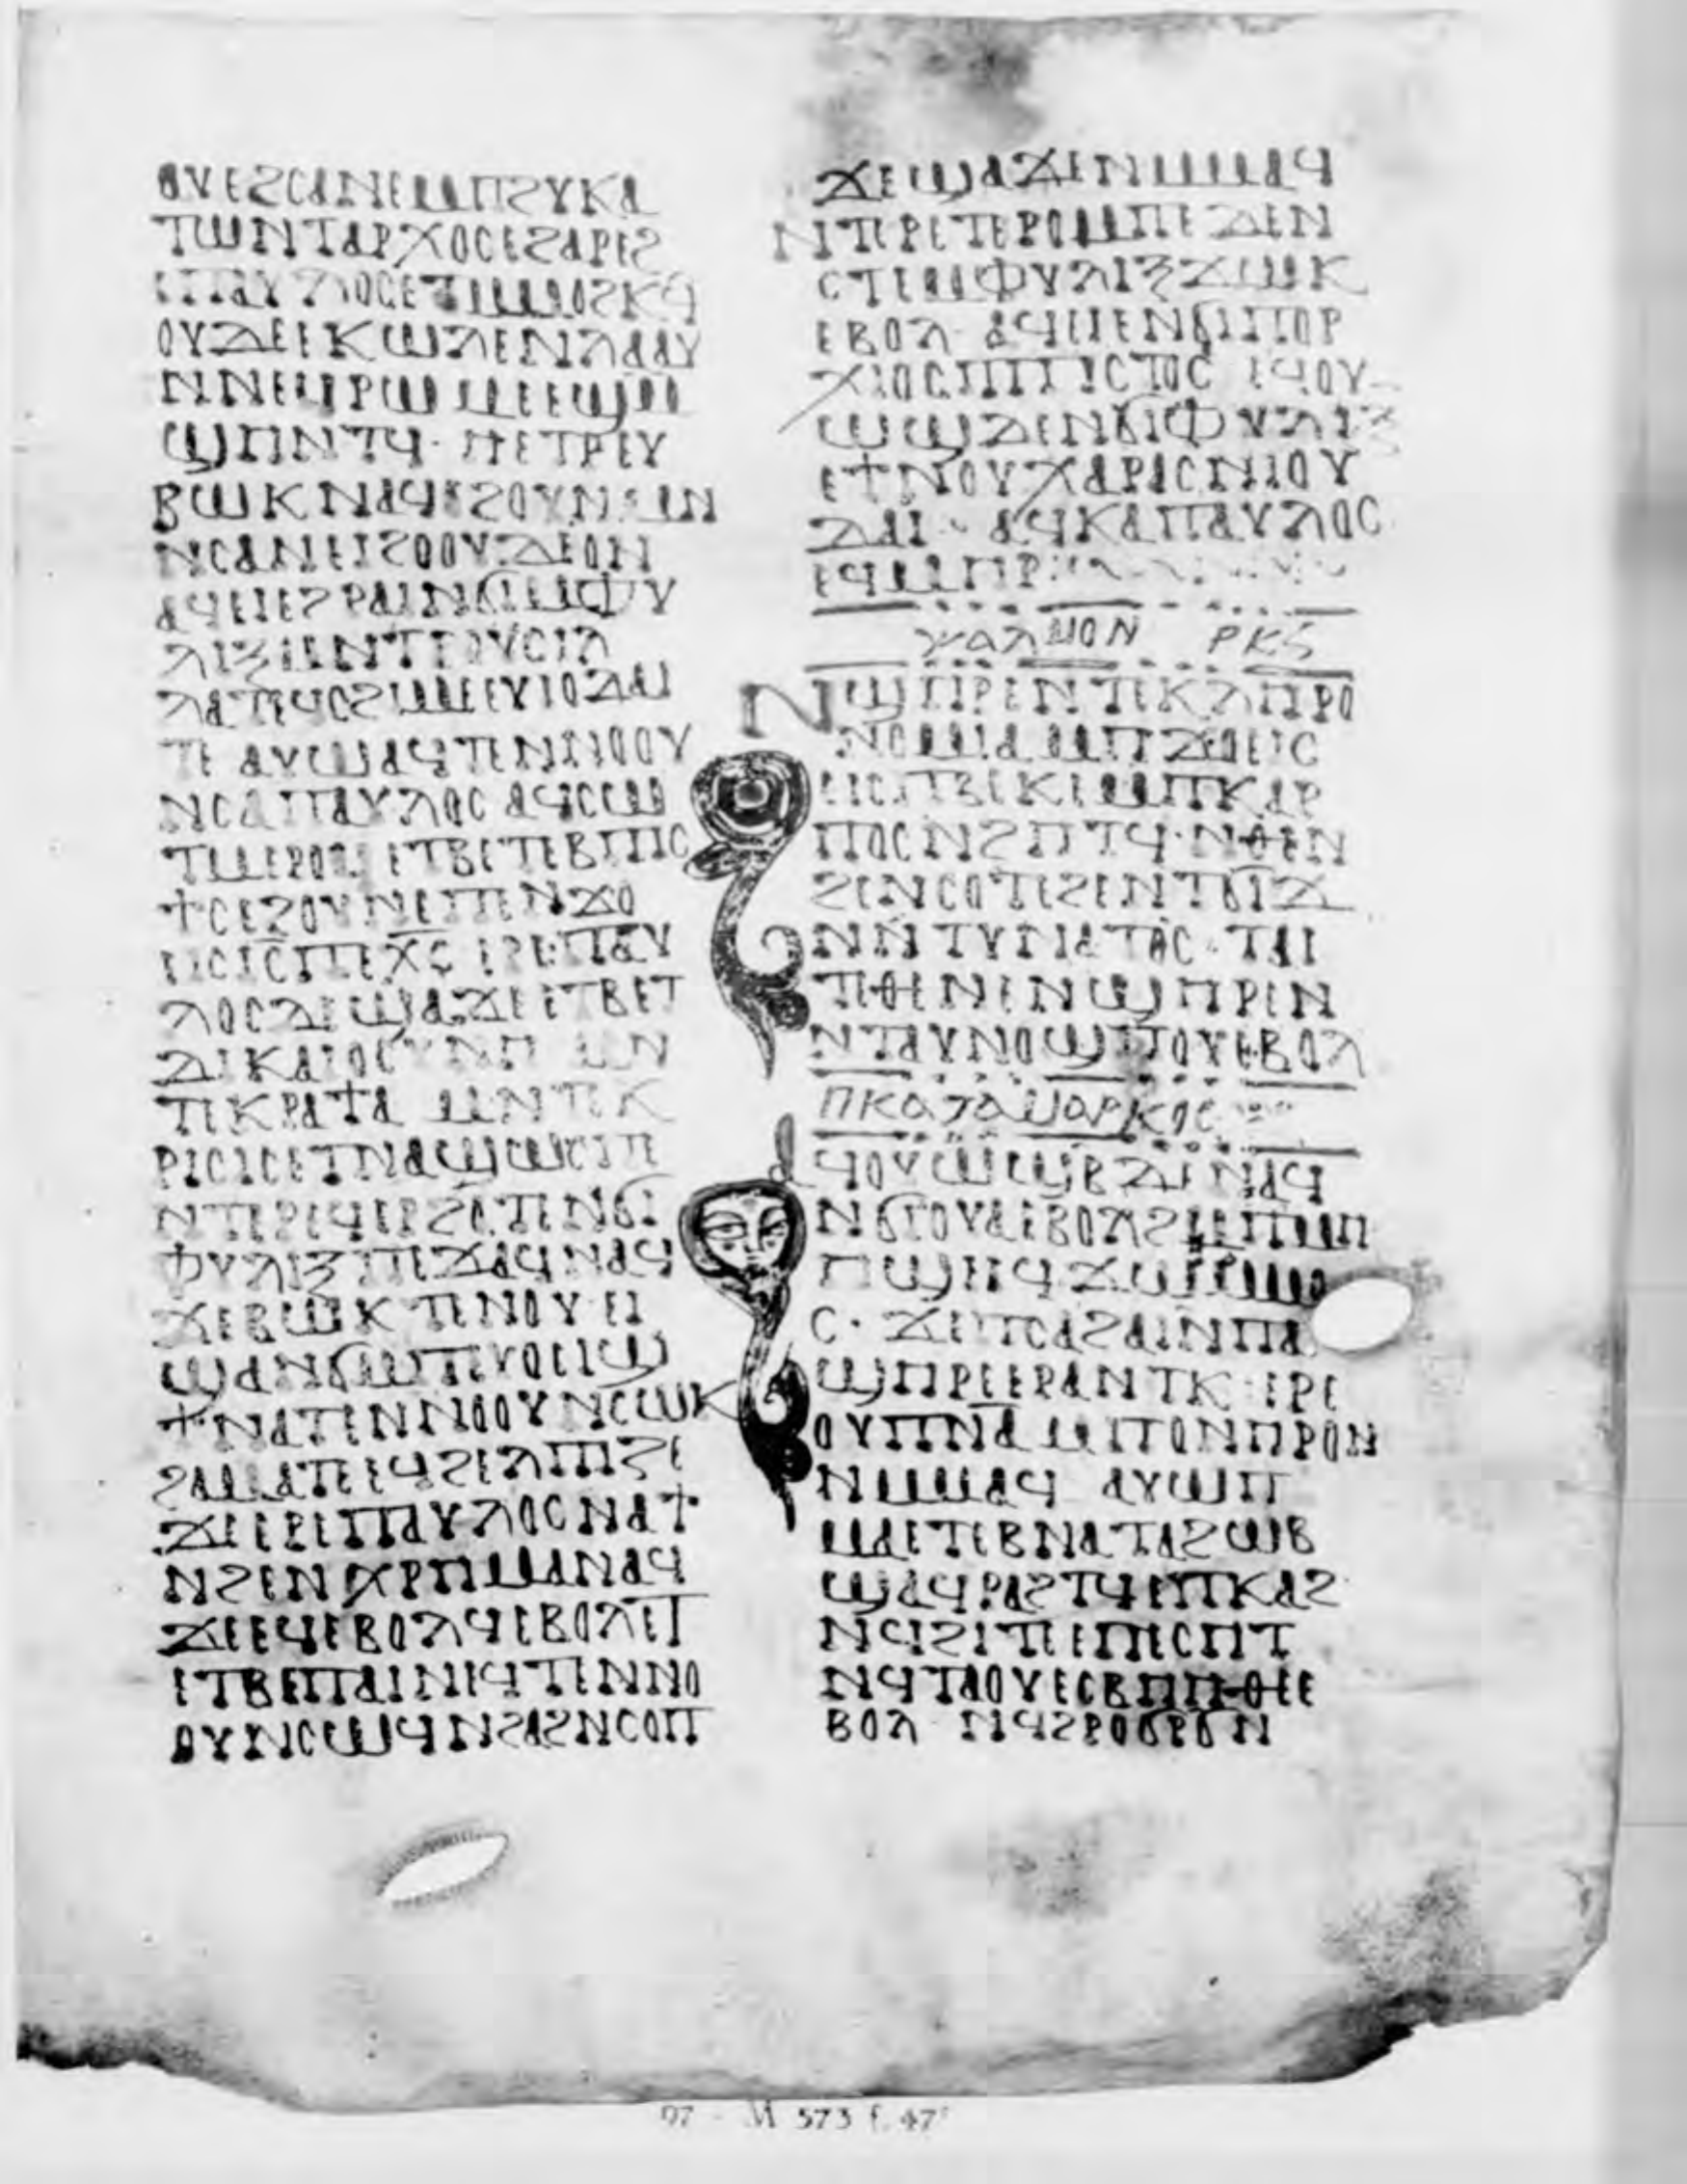 ⲟⲩⲉϩⲥⲁⲛⲉⲙⲡϩⲩⲕⲁ
ⲧⲱⲛⲧⲁⲣⲭⲟⲥⲉϩⲁⲣⲉϩ
ⲉⲡⲁⲩⲗⲟⲥ
ⲟⲩⲇⲉⲉⲕⲱⲗⲉⲛⲗⲁⲁⲩ
ⲛⲛⲉϥⲣⲱⲙⲉⲉϣⲙ
ϣⲏⲛⲧϥ· ⲏⲉⲧⲣⲉⲩ
ⲃⲱⲕⲛⲁϥⲉϩⲟⲩⲛ
ⲛⲥⲁⲛⲉⲓϩⲟⲟⲩⲇⲉⲟⲛ
ⲁϥⲉⲓⲉϩⲣⲁⲓⲛϭⲓⲉⲙⲫⲩ
ⲗⲓⲝⲙⲉⲛⲧⲣⲟⲩⲥⲓⲗ
ⲗⲁⲧⲉϥⲥϩⲓⲙⲉⲉⲩⲓⲟⲇⲁⲓ
ⲧⲉ ⲁⲩⲱⲁϥⲧⲉⲛⲛⲟⲟⲩ
ⲛⲥⲁⲡⲁⲩⲗⲟⲥ ⲁϥⲥⲱ
ⲧⲙⲉⲣⲟϥ ⲉⲧⲃⲉⲧⲉⲃⲡⲓⲥ
ϯⲥⲉϩⲟⲩⲛⲉⲡⲉⲛϫⲟ
ⲉⲓⲥⲓⲥⲡⲉⲭⲥ ⲉⲣⲉⲡⲁⲩ
ⲗⲟⲥⲇⲉϣⲁϫⲉⲉⲧⲃⲉⲧ
ⲇⲓⲕⲁⲓⲟⲥⲩⲛⲏ ⲙⲛ
ⲧⲉⲕⲣⲁϯⲁ ⲙⲛⲧⲉⲕ
ⲣⲓⲥⲓⲥⲉⲧⲛⲁϣⲱⲡⲉ
ⲛⲧⲉⲣⲉϥⲉⲣϩⲟⲧⲉⲛϭⲓ
ⲫⲩⲗⲓⲝ ⲡⲉϫⲁϥⲛⲁϥ
ϫⲉⲃⲱⲕ ⲧⲉⲛⲟⲩ ⲉⲓ
ϣⲁⲛϭⲙⲡⲉⲩⲟⲉⲓϣ
ϯⲛⲁⲧⲉⲛⲛⲟⲟⲩⲛⲥⲱⲕ
ϩⲁⲙⲁⲧⲉⲉϥϩⲉⲗⲡⲓϩⲉ
ϫⲉⲉⲣⲉⲡⲁⲩⲗⲟⲥⲛⲁϯ
ⲛϩⲉⲛⲭⲣⲏⲙⲁⲛⲁϥ
ϫⲉⲉϥⲉⲃⲟⲗϥⲉⲃⲟⲗⲉⲧ
ⲉⲧⲃⲉⲡⲁⲓⲛⲉϥⲧⲉⲛⲛⲟ
ⲟⲩⲛⲥⲱϥⲛϩⲁϩⲛⲥⲟⲡ
ϫⲉϣⲁϫⲉⲛⲙⲙⲁϥ
ⲛⲧⲉⲣⲉⲧⲉⲣⲟⲙⲡⲉ ⲇⲉⲛ
ⲥⲧⲉⲙⲫⲩⲗⲓⲝϫⲱⲕ
ⲉⲃⲟⲗ· ⲁϥⲉⲓⲉⲛϭⲓⲡⲟⲣ
ⲭⲓⲟⲥⲡⲏⲓⲥⲧⲟⲥ ⲉϥⲟⲩ
ⲱϣⲇⲉⲛϭⲓⲫⲩⲗⲓⲝ
ⲉϯⲛⲟⲩⲭⲁⲣⲓⲥⲛⲓⲟⲩ
ⲇⲁⲓ· ⲁϥⲕⲁⲡⲁⲩⲗⲟⲥ
ⲉϥⲙⲏⲣ
ⲯⲁⲗⲙⲟⲛ ⲣⲕⲋ
ⲛϣⲏⲣⲉⲛⲧⲉⲕⲗⲏⲣⲟ
ⲛⲟⲙⲓⲁ ⲙⲡϫⲟⲉⲓⲥ
ⲉⲓⲥⲡⲃⲉⲕⲉⲙⲡⲕⲁⲣ
ⲡⲟⲥⲛϩⲏⲧϥ· ⲛⲑⲉⲛ
ϩⲉⲛⲥⲟⲧⲉϩⲉⲛⲧϭⲓϫ
ⲛⲛⲧⲩⲛⲁⲧⲟⲥ· ⲧⲁⲓ
ⲧⲉⲑⲉⲛⲉⲛϣⲏⲣⲉⲛ
ⲛⲧⲁⲩⲛⲟϣⲡⲟⲩⲉⲃⲟⲗ
ⲡⲕⲁⲧⲁⲙⲁⲣⲕⲟⲥ
ⲁϥⲟⲩⲱϣⲃ ⲇⲉ ⲛⲁϥ
ⲛϭⲓⲟⲩⲁⲉⲃⲟⲗϩⲙⲡⲙⲏ
ⲏϣⲉϥϫⲱⲙⲙⲟ
ⲥ· ϫⲉⲡⲥⲁϩⲁⲓⲛⲡⲁ
ϣⲏⲣⲉⲉⲣⲁⲛⲧⲕ ⲉⲣⲉ
ⲟⲩⲡⲛⲁ ⲙⲡⲟⲛⲏⲣⲟⲛ
ⲛⲙⲙⲁϥ ⲁⲩⲱⲡ
ⲙⲁⲉⲧⲉⲃⲛⲁⲧⲁϩⲱⲃ
ϣⲁϥⲣⲁϩⲧϥⲉⲡⲕⲁϩ
ⲛϥϩⲓⲧⲉⲉⲡⲉⲥⲏⲧ
ⲛϥⲧⲁⲟⲩⲉⲥⲃⲏⲏⲧⲉⲉ
ⲃⲟⲗ ⲛϥϩⲣⲟϭⲣϭⲛ
07 - M 573 f. 47ʳ